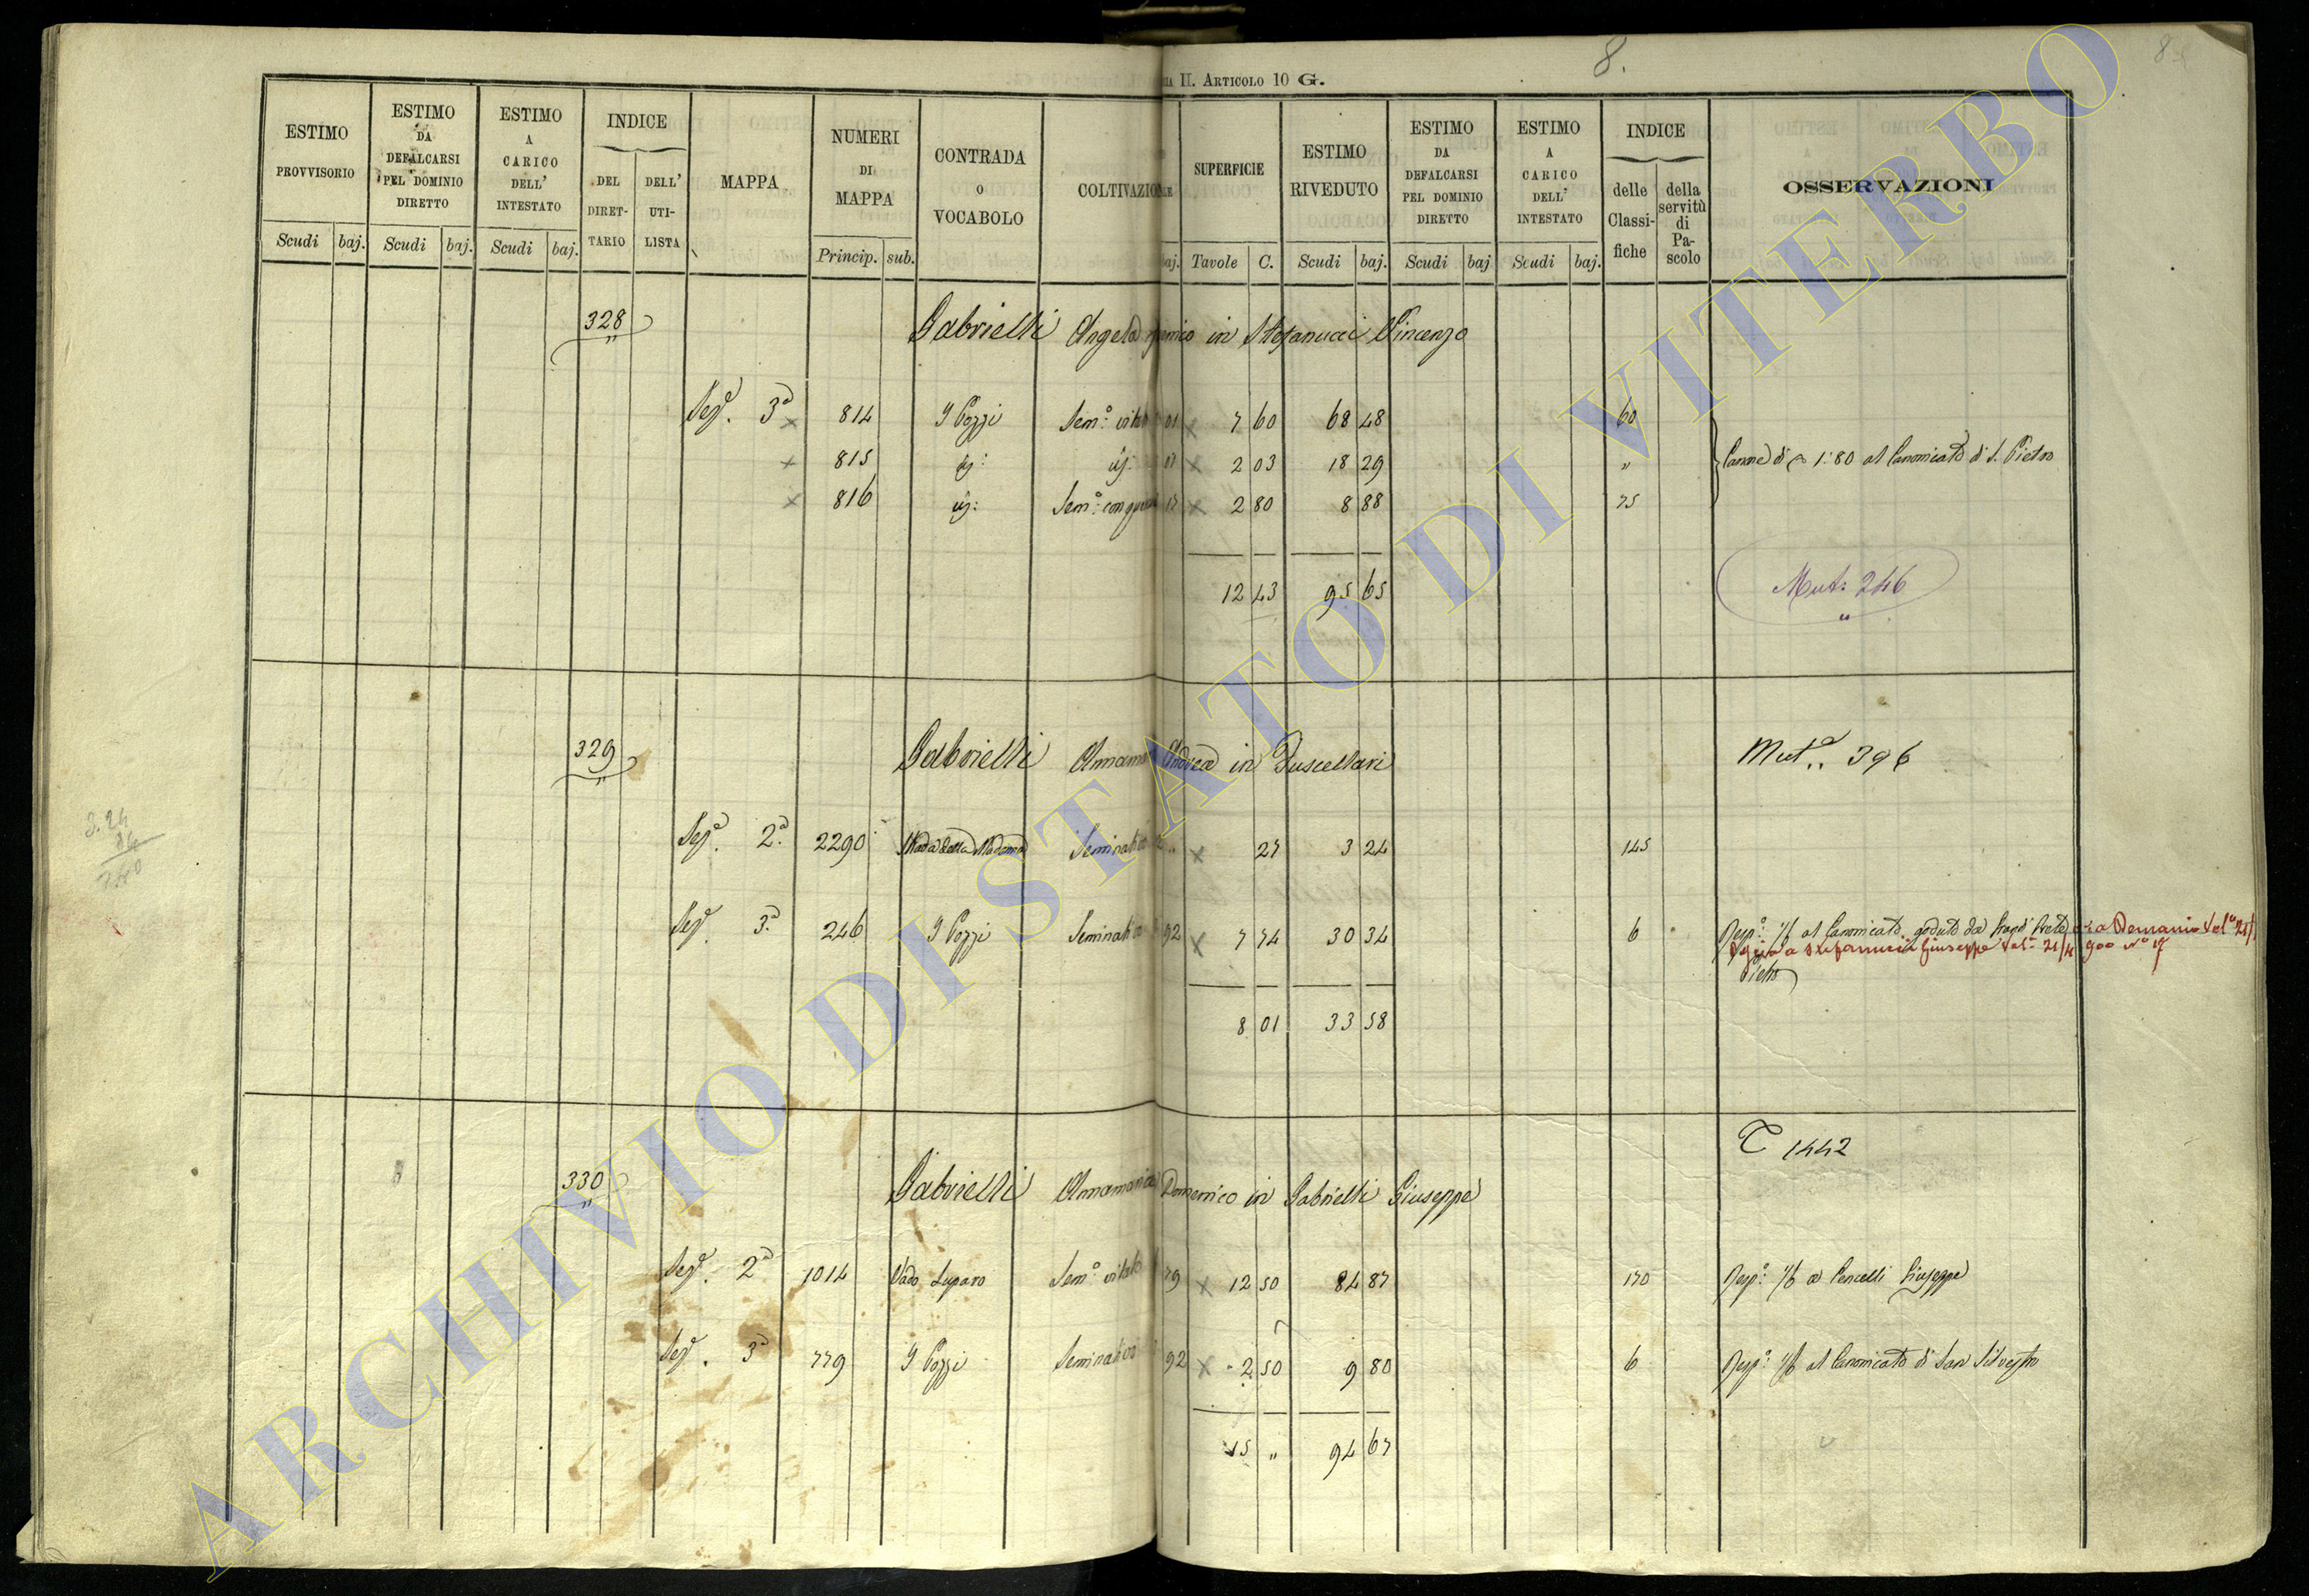 8.
II. ARTICOLO 10 G.
ESTIMO PROVVISORIO
ESTIMO DA DEFALCARSI PEL DOMINIO DIRETTO
ESTIMO A CARICO DELL' INTESTATO
INDICE
DEL DIRETTARIO
DELL' UTILISTA
MAPPA
NUMERI DI MAPPA
CONTRADA O VOCABOLO
COLTIVAZION
SUPERFICIE
ESTIMO RIVEDUTO
ESTIMO DA DEFALCARSI PEL DOMINIO DIRETTO
ESTIMO A CARICO DELL' INTESTATO
INDICE
delle Classifiche
della servitù di Pascolo
OSSERVAZIONI
Scudi baj. Scudi baj. Scudi baj. Princip. sub. baj. Tavole C. Scudi baj. Scudi baj Scudi baj.
328 Gabrielli Angela in Stefanucci Vincenzo
Sez.e 3a 814 I Pozzi Sem.o vitato 01 7 60 68 48 60
815 01 2 03 18 29 "
Canone di 1:80 al Canonicato di S. Pietro
816 Sem.o con 17 2 80 8 88 75
12 43 95 65
Mut: 246
329 Gabrielli Andrea in Puscellari
Mut.a 396
Sez.e 2a 2290 Strada della Madonna Seminativo " 27 3 24 145
3.24
Sez.e 3a 246 I Pozzi Seminativo 92 7 74 30 34 6
Resp.o al Canonicato goduto da Demanio
a Stefanucci Giuseppe
Pietro
8 01 33 58
T 1442
330 Gabrielli Annamaria Domenico in Gabrielli Giuseppe
Sez.e 2a 1014 Vado Luparo Sem.o vitato 79 12 50 84 87 170 Resp.o a Giuseppe
Sez.e 3a 779 I Pozzi Seminativo 92 2 50 9 80 6 Resp.o al Canonicato di San Silvestro
15 " 94 67
ARCHIVIO DI STATO DI VITERBO